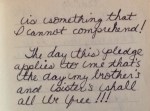 is something that
I cannot comprehend!
The day this pledge
applies to me that's
the day my brother's
and sister's shall
all be free!!!